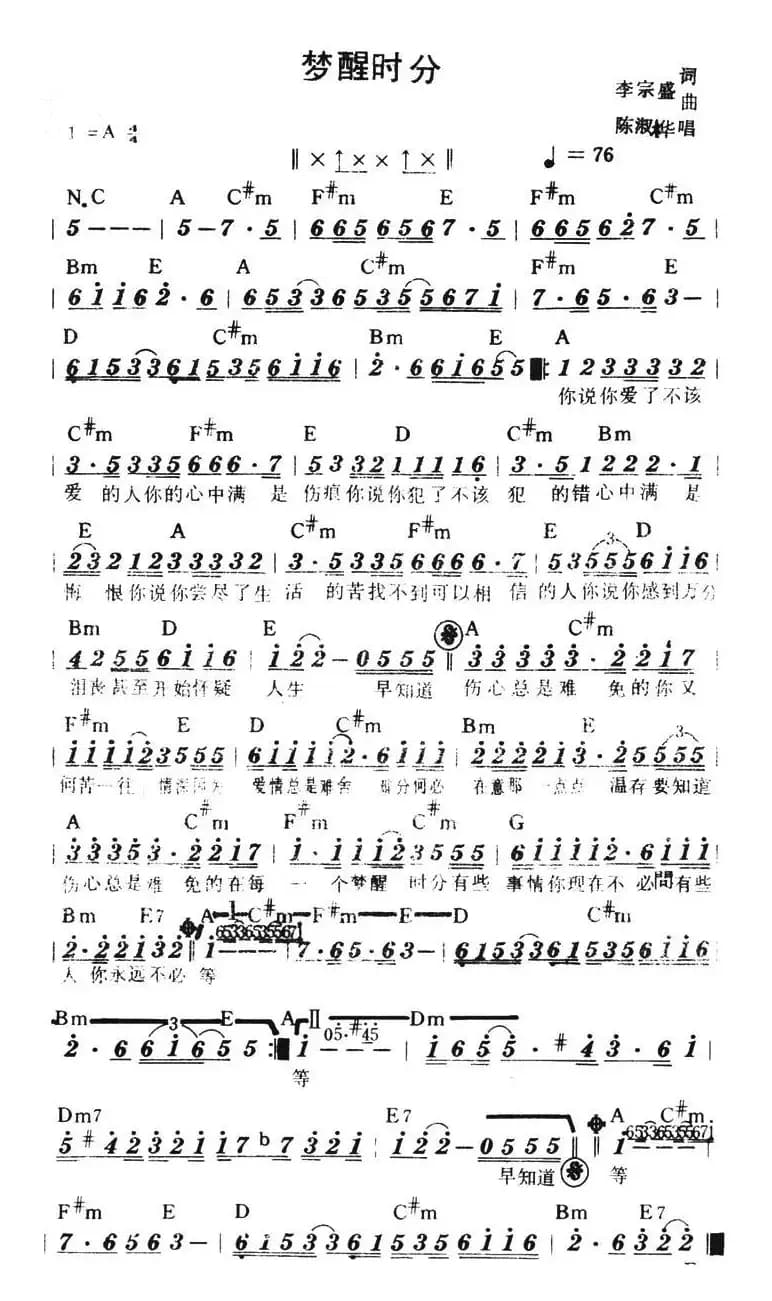 梦醒时分
李宗盛 词曲
陈淑桦 唱
1=A 4/4
‖×↑××↑×‖ ♩=76
N.C A C#m F#m E F#m C#m
| 5 - - - | 5 - 7 · 5 | 6 6 5 6 5 6 7 · 5 | 6 6 5 6 2 7 · 5 |
Bm E A C#m F#m E
| 6 1 1 6 2 · 6 | 6 5 3 3 6 5 3 5 5 6 7 1 | 7 · 6 5 · 6 3 - |
D C#m Bm E A
| 6 1 5 3 3 6 1 5 3 5 6 1 1 6 | 2 · 6 6 1 6 5 5 :‖ 1 2 3 3 3 3 2 |
你说你爱了不该
C#m F#m E D C#m Bm
| 3 · 5 3 3 5 6 6 6 · 7 | 5 3 3 2 1 1 1 1 6 | 3 · 5 1 2 2 2 · 1 |
爱 的人你的心中满 是 伤痕你说你犯了不该 犯 的错心中满 是
E A C#m F#m E D
2 3 2 1 2 3 3 3 3 2 | 3 · 5 3 3 5 6 6 6 6 · 7 | 5 3 5 5 5 6 1 1 6
悔 恨你说你尝尽了生 活 的苦找不到可以相 信的人你说你感到万分
Bm D E A C#m
| 4 2 5 5 6 1 1 6 | 1 2 2 - 0 5 5 5 ‖ 3 3 3 3 3 · 2 2 1 7
沮丧甚至开始怀疑 人生 早知道 伤心总是难 免的你又
F#m E D C#m Bm E
1 1 1 1 2 3 5 5 5 | 6 1 1 1 1 2 · 6 1 1 1 | 2 2 2 2 1 3 · 2 5 5 5 5
何苦一往 情深因为 爱情总是难舍 难分何必 在意那 一点点 温存要知道
A C#m F#m C#m G
| 3 3 3 5 3 · 2 2 1 7 | 1 · 1 1 1 2 3 5 5 5 | 6 1 1 1 1 2 · 6 1 1 1
伤心总是难 免的在每 一 个梦醒 时分有些 事情你现在不 必問有些
Bm E7 A 1 C#m F#m E D C#m
| 2 · 2 2 1 3 2 2 | 1 - - - | 7 · 6 5 · 6 3 - | 6 1 5 3 3 6 1 5 3 5 6 1 1 6 |
65336535567i
人 你永远不必 等
Bm 3 E A Ⅱ Dm
2 · 6 6 1 6 5 5 :‖ 1 - - - | 1 6 5 5 · #4 3 · 6 1 |
05·#45
等
Dm7 E7 A C#m
5 #4 2 3 2 1 1 7 b7 3 2 1 | 1 2 2 - 0 5 5 5 ‖ 1 - - -
65336535567i
早知道 等
F#m E D C#m Bm E7
| 7 · 6 5 6 3 - | 6 1 5 3 3 6 1 5 3 5 6 1 1 6 | 2 · 6 3 2 2 ‖